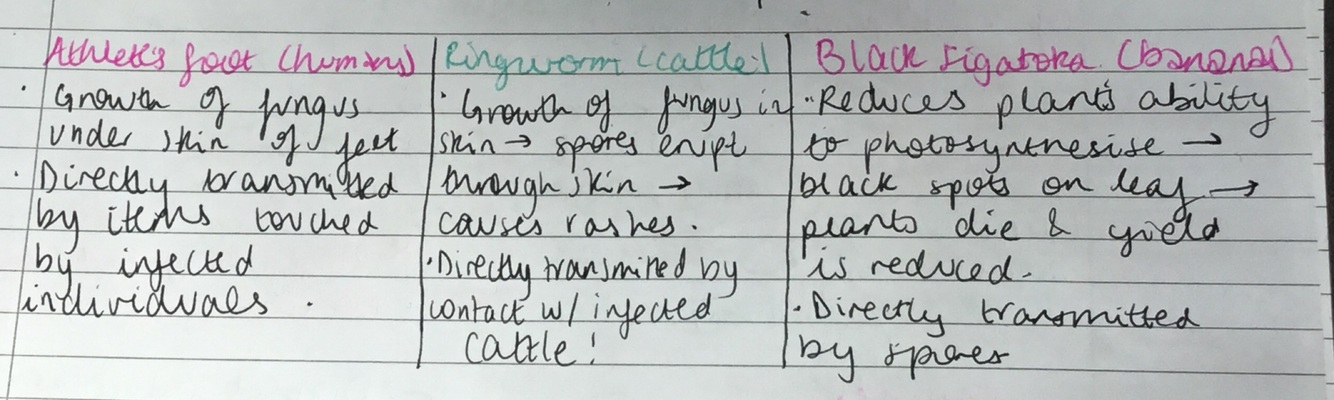 Athlete's foot (humans)
• Growth of fungus
under skin of feet
• Directly transmitted
by items touched
by infected
individuals .
Ringworm (cattle)
• Growth of fungus in
skin → spores erupt
through skin →
causes rashes.
• Directly transmitted by
contact w/ infected
cattle!
Black Sigatoka (bananas)
• Reduces plant's ability
to photosynthesise →
black spots on leaf →
plants die & yield
is reduced.
• Directly transmitted
by spores